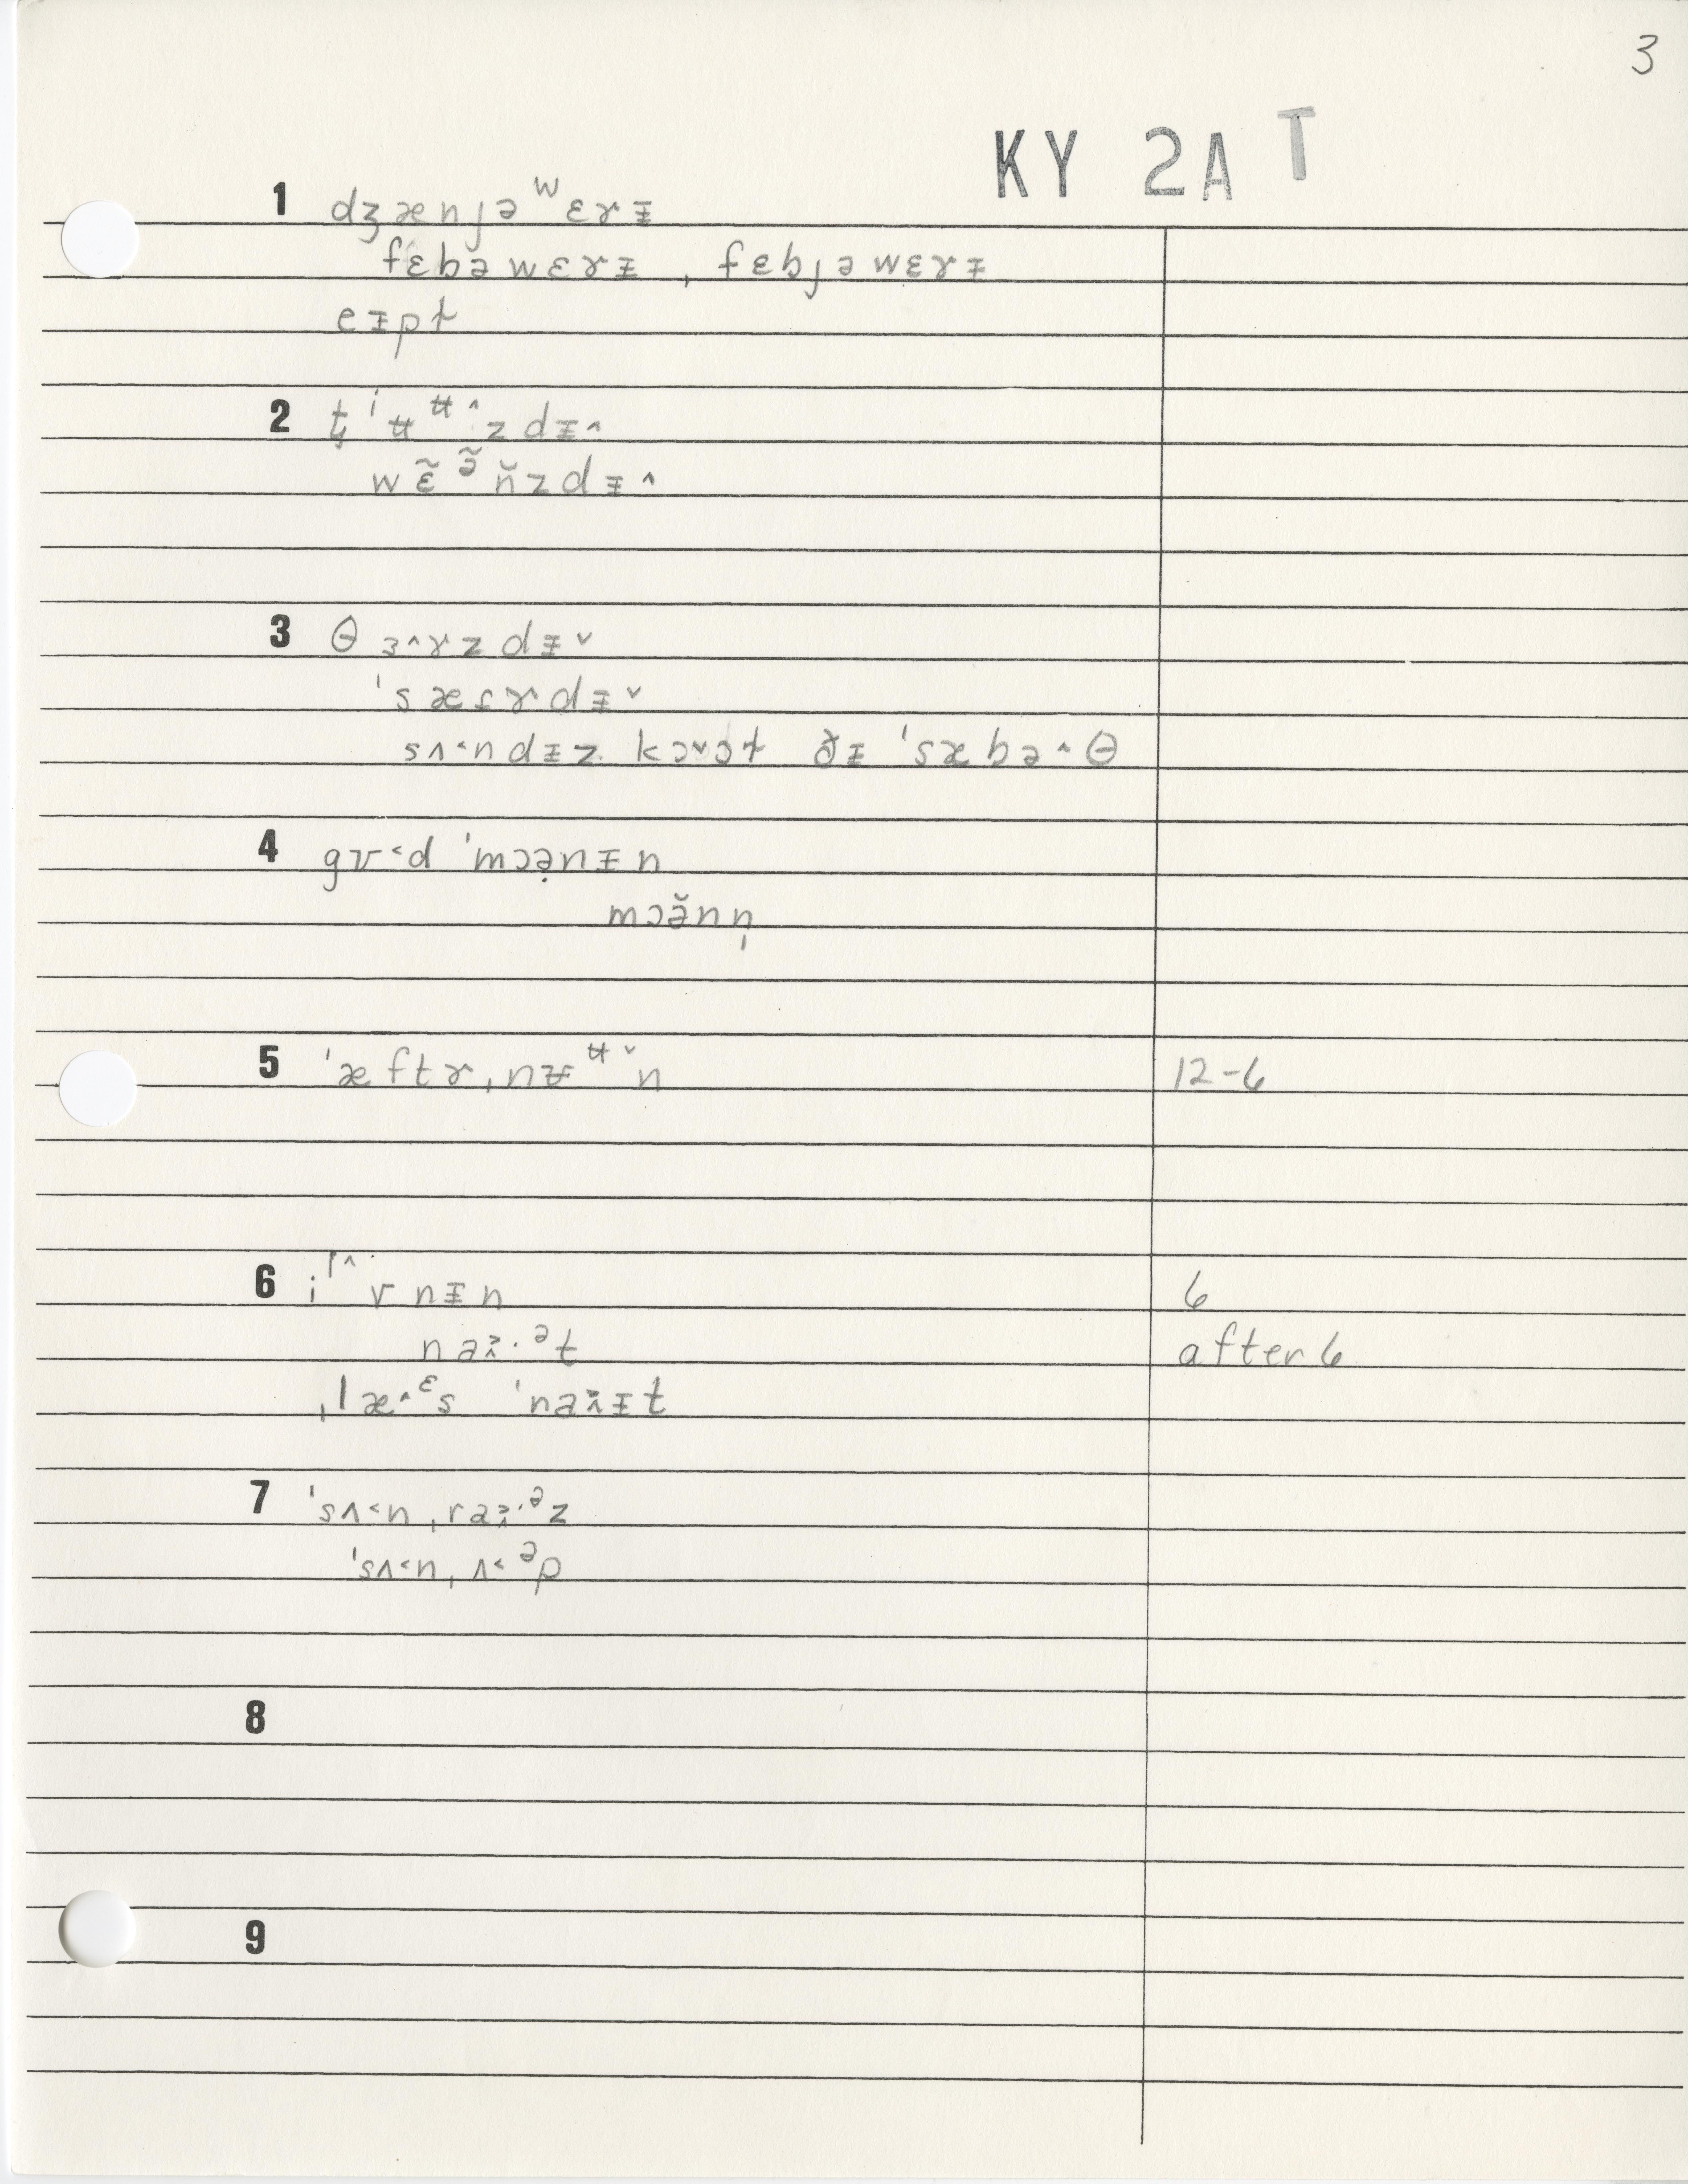 3
KY 2A T
1 dʒænjəʷɛrɨ
fɛbəwɛrɨ , fɛbjəwɛrɨ
eɪpt
2 t̬ʲʉᶶ˄zdɨ˄
wɛ̃ə̃n̆zdɨ˄
3 θɜ˄ɤzdɨ˅
ˈsæfɚdɨ˅
sʌ˂ndɨz kɔ˅ɔt ðɨ ˈsæbə˄θ
4 gʊ˂d ˈmɔə̣nɨn
mɔə̆nn̩
5 ˈæftɚˌnʉᶶ˅n 12-6
6 iᶦ˄vnɨn 6
naɪ·ᵊt after 6
ˌlæ˄ᵋs ˈnaɪɨt
7 ˈsʌ˂nˌraɪ·ᵊz
ˈsʌ˂nˌʌ˂ᵊp
8
9